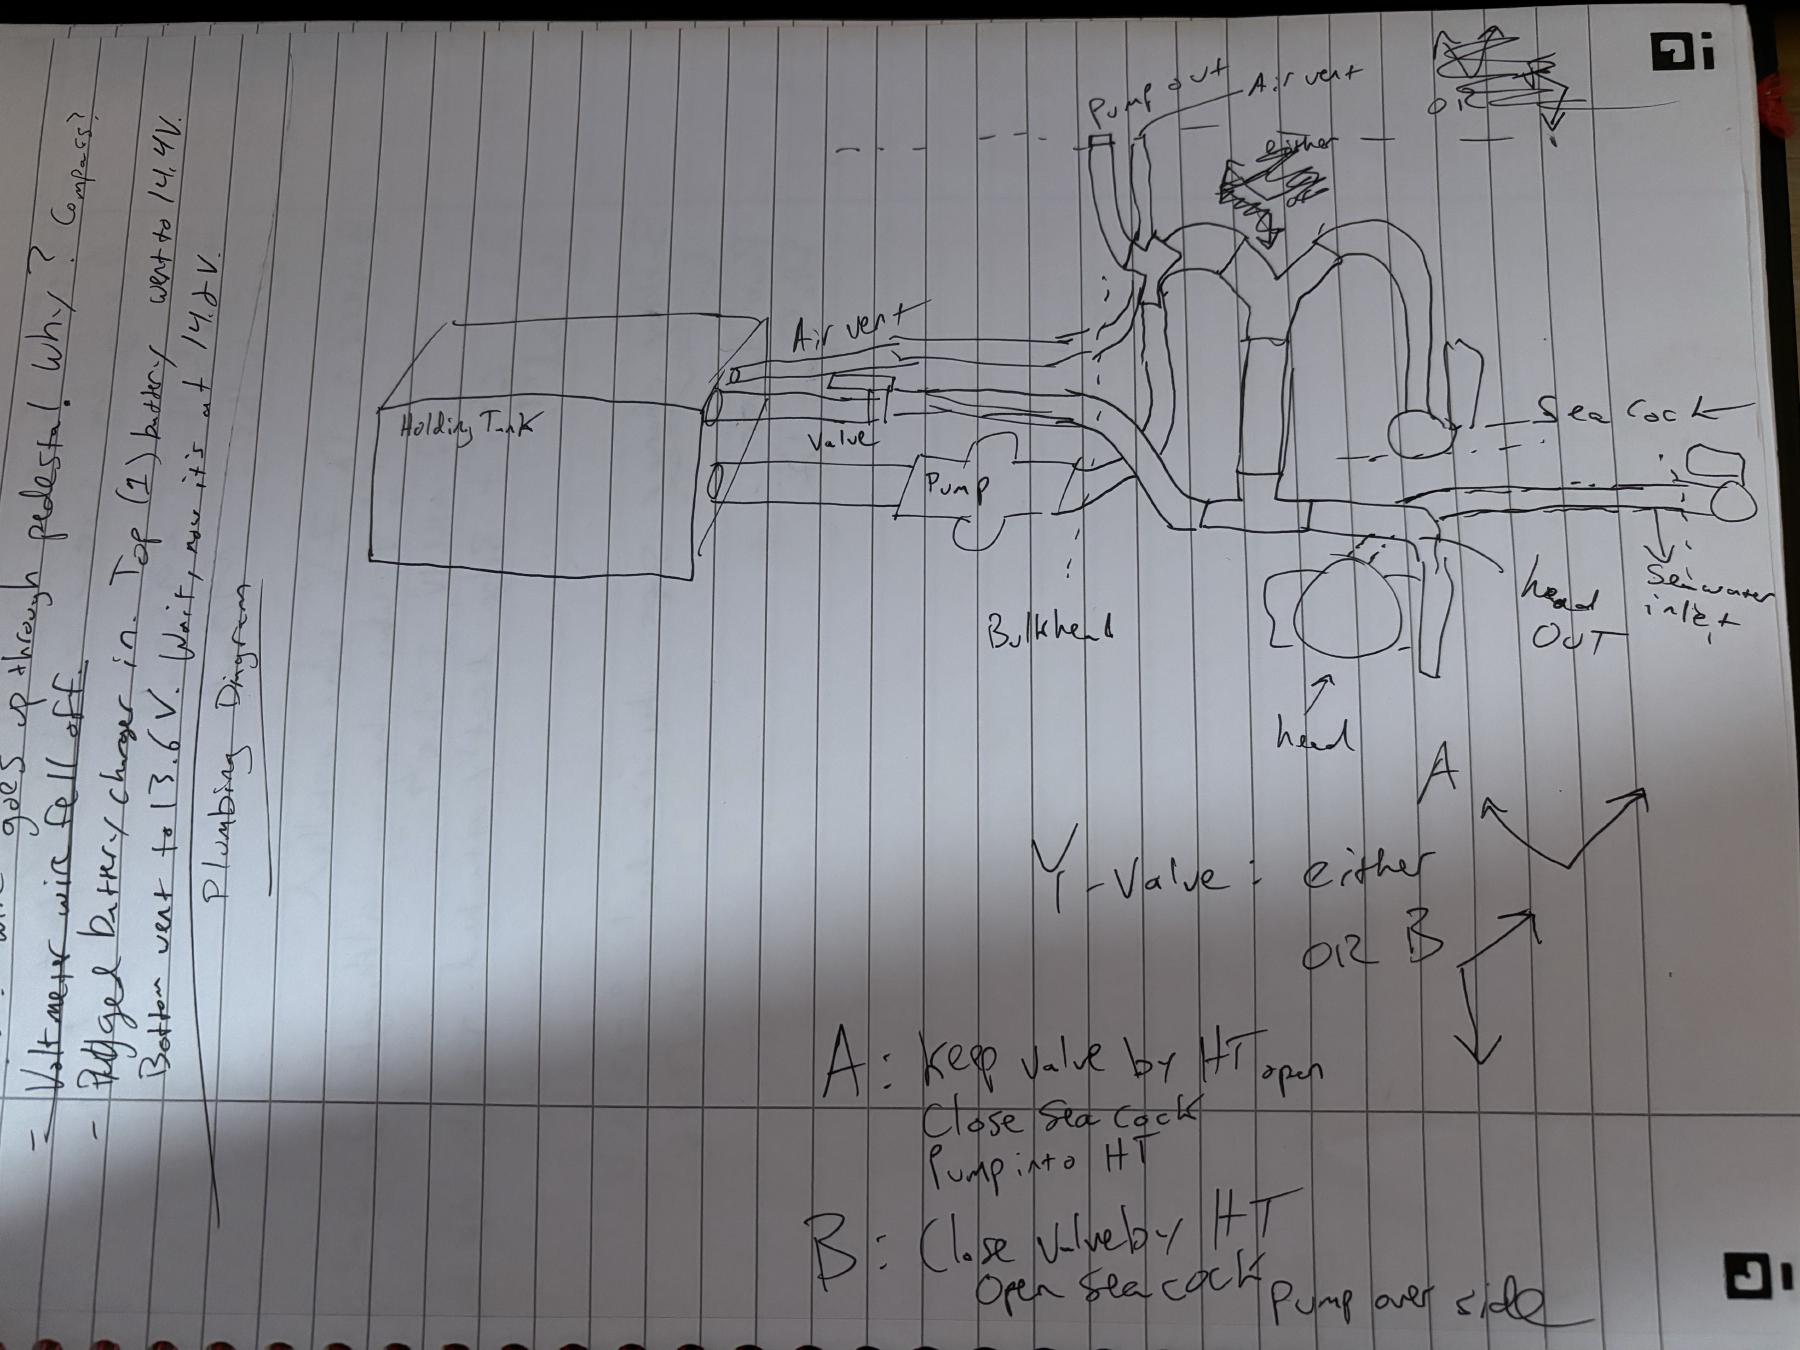 goes up through pedestal. Why? Compass?
- Voltmeter wire fell off.
- Plugged battery charger in. Top (1) battery went to 14.4V.
Bottom went to 13.6V. Wait, now it's at 14.2V.
Plumbing Diagram
Pump out
Air vent
either
OR
Air vent
Holding Tank
Valve
Pump
Sea cock
Bulkhead
head
OUT
Seawater
inlet
head
A
Y-Valve: either
OR B
A: Keep valve by HT open
Close sea cock
Pump into HT
B: Close valve by HT
Open sea cock
Pump over side